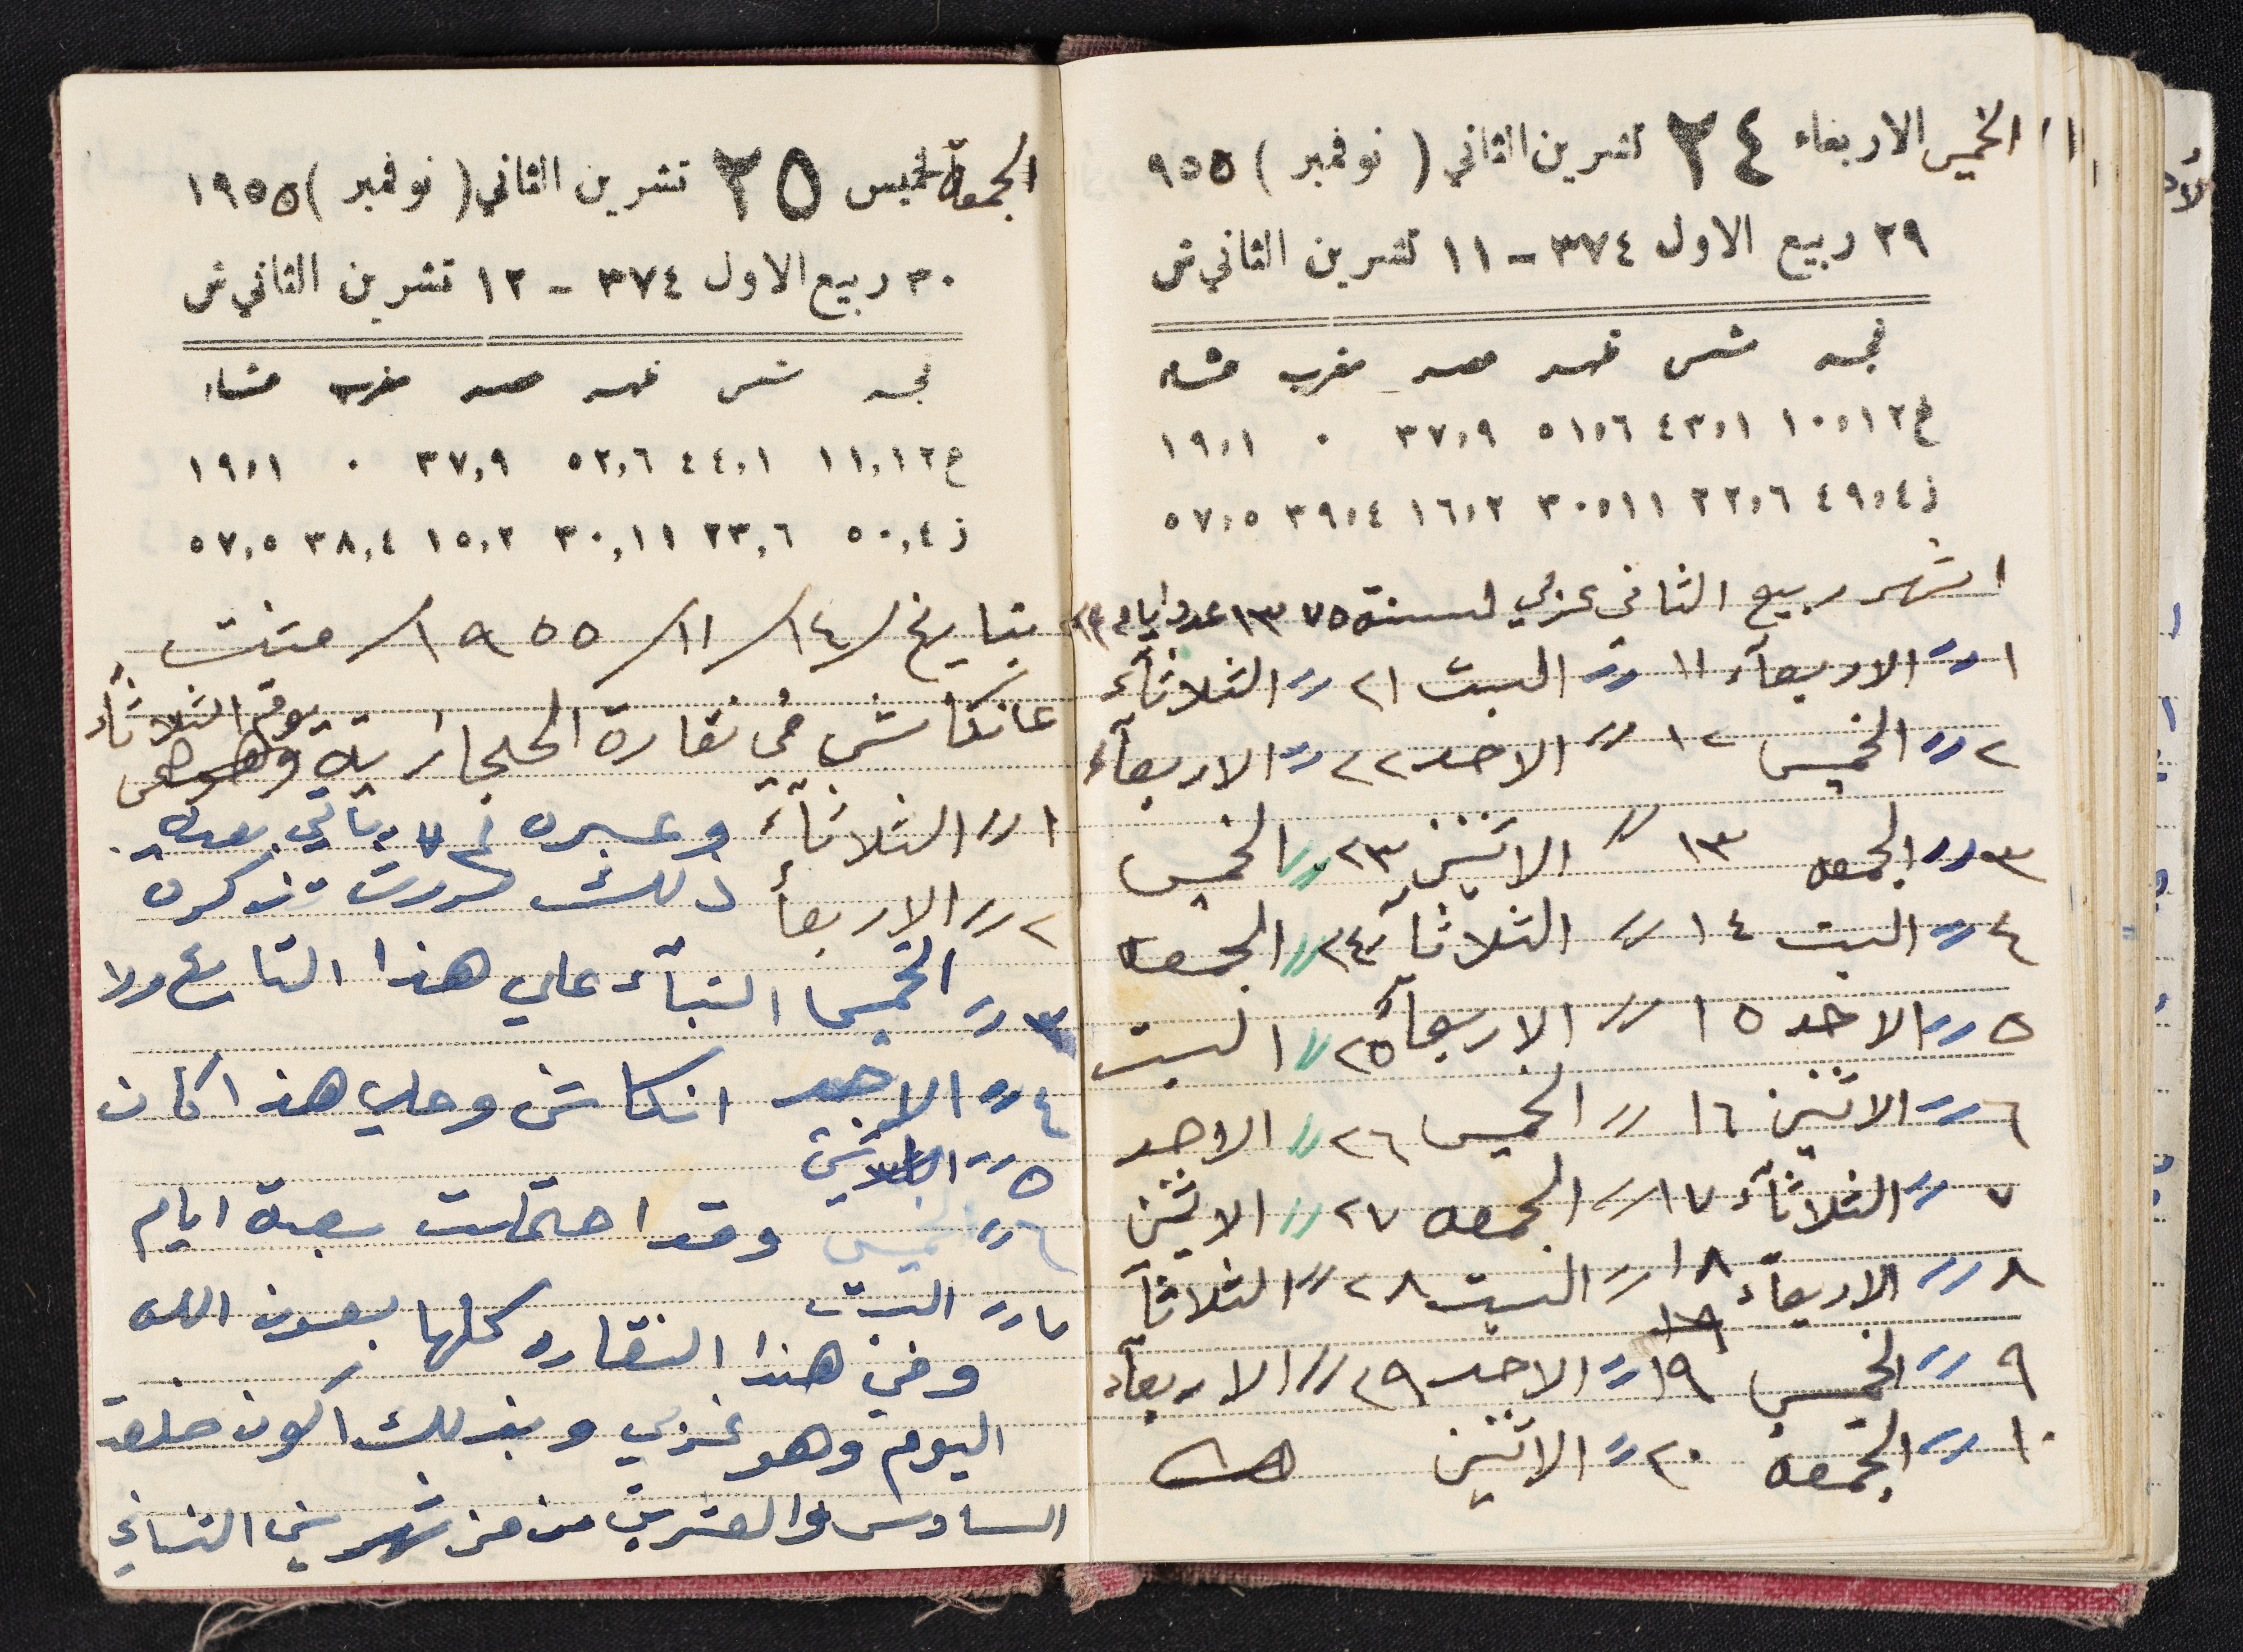 الخميس الاربعاء ٢٤ تشرين الثاني ( نوفمبر ) ٩٥٥
٢٩ ربيع الاول ٣٧٤ - ١١ تشرين الثاني ش
فجر شمس ظهر عصر مغرب عشاء
ع ١٠,١٢ ٤٣,١ ٥١,٦ ٣٧,٩ ٠ ١٩,١
ز ٤٩,٤ ٢٢,٦ ٣٠,١١ ١٦,٢ ٣٩,٤ ٥٧,٥
١ شهر ربيع الثاني غزلي لسنة ١٣٧٥ عدد ايام ٢٩
١ // الاربعآء ١١ // السبت ٢١ // الثلاثآء
٢ // الخميس ١٢ // الاحد ٢٢ // الاربعآء
٣ // الجمعه ١٣ // الاثنين ٢٣ // الخميس
٤ // السبت ١٤ // الثلاثآء ٢٤ // الجمعه
٥ // الاحد ١٥ // الاربعآء ٢٥ // السبت
٦ // الاثنين ١٦ // الخميس ٢٦ // الاحد
٧ // الثلاثآء ١٧ // الجمعه ٢٧ // الاثنين
٨ // الاربعآء ١٨ // السبت ٢٨ // الثلاثآ
١٩
٩ // الخميس ١٩ // الاحد ٢٩ // الاربعآء
١٠ // الجمعه ٢٠ // الاثنين
الجمعة الخميس ٢٥ تشرين الثاني ( نوفمبر ) ١٩٥٥
٣٠ ربيع الاول ٣٧٤ - ١٢ تشرين الثاني ش
فجر شمس ظهر عصر مغرب عشاء
ع ١١,١٢ ٤٤,١ ٥٢,٦ ٣٧,٩ ٠ ١٩,١
ز ٥٠,٤ ٢٣,٦ ٣٠,١١ ١٥,٢ ٣٨,٤ ٥٧,٥
بتايخ / ١٤ / ١١ / ١٩٥٥ /
عانكاش في نقارة الحلجازية يوم الثلاثآء
١ // الثلاثآء وعبره ياتي بعده
٢ // الاربعآ ذلك كررت تذكره
٣ // الخميس البنآء علي هذا التاريخ ولا
٤ // الاحد انكاش وعلي هذا كان
٥ // الاثنين
٦ // الخميس وقد احتملت سبعة ايام
// السبت
وفي هذا النقاره كلها بعون الله
اليوم وهو غزلي وبذلك اكون خلقة
السادس والعشرين من تشرين الثاني